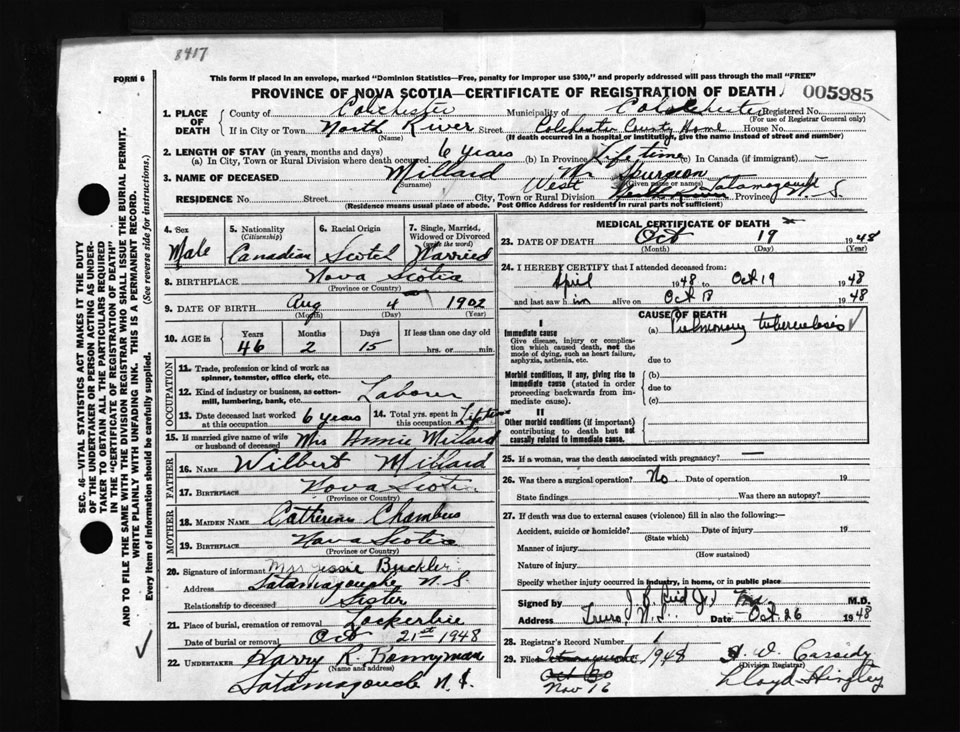 8417
FORM 6
This form if placed in an envelope, marked "Dominion Statistics—Free, penalty for improper use $300," and properly addressed will pass through the mail "FREE"
PROVINCE OF NOVA SCOTIA—CERTIFICATE OF REGISTRATION OF DEATH
005985
1. PLACE OF DEATH
County of Colchester Municipality of Colchester Registered No.
(For use of Registrar General only)
If in City or Town North River Street Colchester County Home House No.
(Name) (If death occurred in a hospital or institution, give the name instead of street and number)
2. LENGTH OF STAY (in years, months and days)
(a) In City, Town or Rural Division where death occurred 6 years (b) in Province Life time (c) in Canada (if immigrant) —
3. NAME OF DECEASED Millard Wm Spurgeon
(Surname) (Given name or names)
RESIDENCE No. Street City, Town or Rural Division West Tatamagouche Province N S
(Residence means usual place of abode. Post Office Address for residents in rural parts not sufficient)
4. Sex Male
5. Nationality (Citizenship) Canadian
6. Racial Origin Scotch
7. Single, Married, Widowed or Divorced (write the word) Married
8. BIRTHPLACE Nova Scotia
(Province or Country)
9. DATE OF BIRTH Aug 4 1902
(Month) (Day) (Year)
10. AGE in Years 46 Months 2 Days 15 If less than one day old hrs. or min.
OCCUPATION
11. Trade, profession or kind of work as spinner, teamster, office clerk, etc.
12. Kind of industry or business, as cotton-mill, lumbering, bank, etc. Laborer
13. Date deceased last worked at this occupation 6 years 14. Total yrs. spent in this occupation Lifetime
15. If married give name of wife or husband of deceased Mrs Annie Millard
FATHER
16. NAME Wilbert Millard
17. BIRTHPLACE Nova Scotia
(Province or Country)
MOTHER
18. MAIDEN NAME Catherine Chambers
19. BIRTHPLACE Nova Scotia
(Province or Country)
20. Signature of informant Mrs Jessie Buckler
Address Tatamagouche N.S.
Relationship to deceased Sister
21. Place of burial, cremation or removal Lockerbie
Date of burial or removal Oct 21st 1948
22. UNDERTAKER Harry R. Bonnyman
(Name and address)
Tatamagouche N.S.
MEDICAL CERTIFICATE OF DEATH
23. DATE OF DEATH Oct 19 1948
(Month) (Day) (Year)
24. I HEREBY CERTIFY that I attended deceased from:
April 1948 to Oct 19 1948
and last saw him alive on Oct 18 1948
CAUSE OF DEATH
I
Immediate cause (a) Pulmonary tuberculosis
Give disease, injury or complication which caused death, not the mode of dying, such as heart failure, asphyxia, asthenia, etc.
due to
Morbid conditions, if any, giving rise to immediate cause (stated in order proceeding backwards from immediate cause).
(b)
due to
(c)
II
Other morbid conditions (if important) contributing to death but not causally related to immediate cause.
25. If a woman, was the death associated with pregnancy? —
26. Was there a surgical operation? No. Date of operation 19
State findings Was there an autopsy?
27. If death was due to external causes (violence) fill in also the following:—
Accident, suicide or homicide? Date of injury 19
(State which)
Manner of injury
(How sustained)
Nature of injury
Specify whether injury occurred in industry, in home, or in public place
Signed by M.D.
Address Truro N.S. Date Oct. 26 1948
28. Registrar's Record Number 1
29. Filed 1948
Nov 16
(Division Registrar)
SEC. 46—VITAL STATISTICS ACT MAKES IT THE DUTY
OF THE UNDERTAKER OR PERSON ACTING AS UNDER-
TAKER TO OBTAIN ALL THE PARTICULARS REQUIRED
IN THE "CERTIFICATE OF REGISTRATION OF DEATH"
AND TO FILE THE SAME WITH THE DIVISION REGISTRAR WHO SHALL ISSUE THE BURIAL PERMIT.
WRITE PLAINLY WITH UNFADING INK. THIS IS A PERMANENT RECORD.
Every item of information should be carefully supplied. (See reverse side for instructions.)